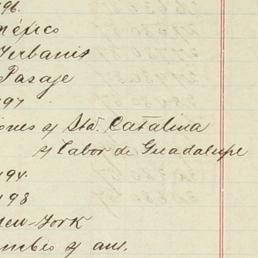 96.
México
Urbanis
Pasaje
97
iones y Sta. Catalina
y Labor de Guadalupe
94.
93
New-York
y aux.